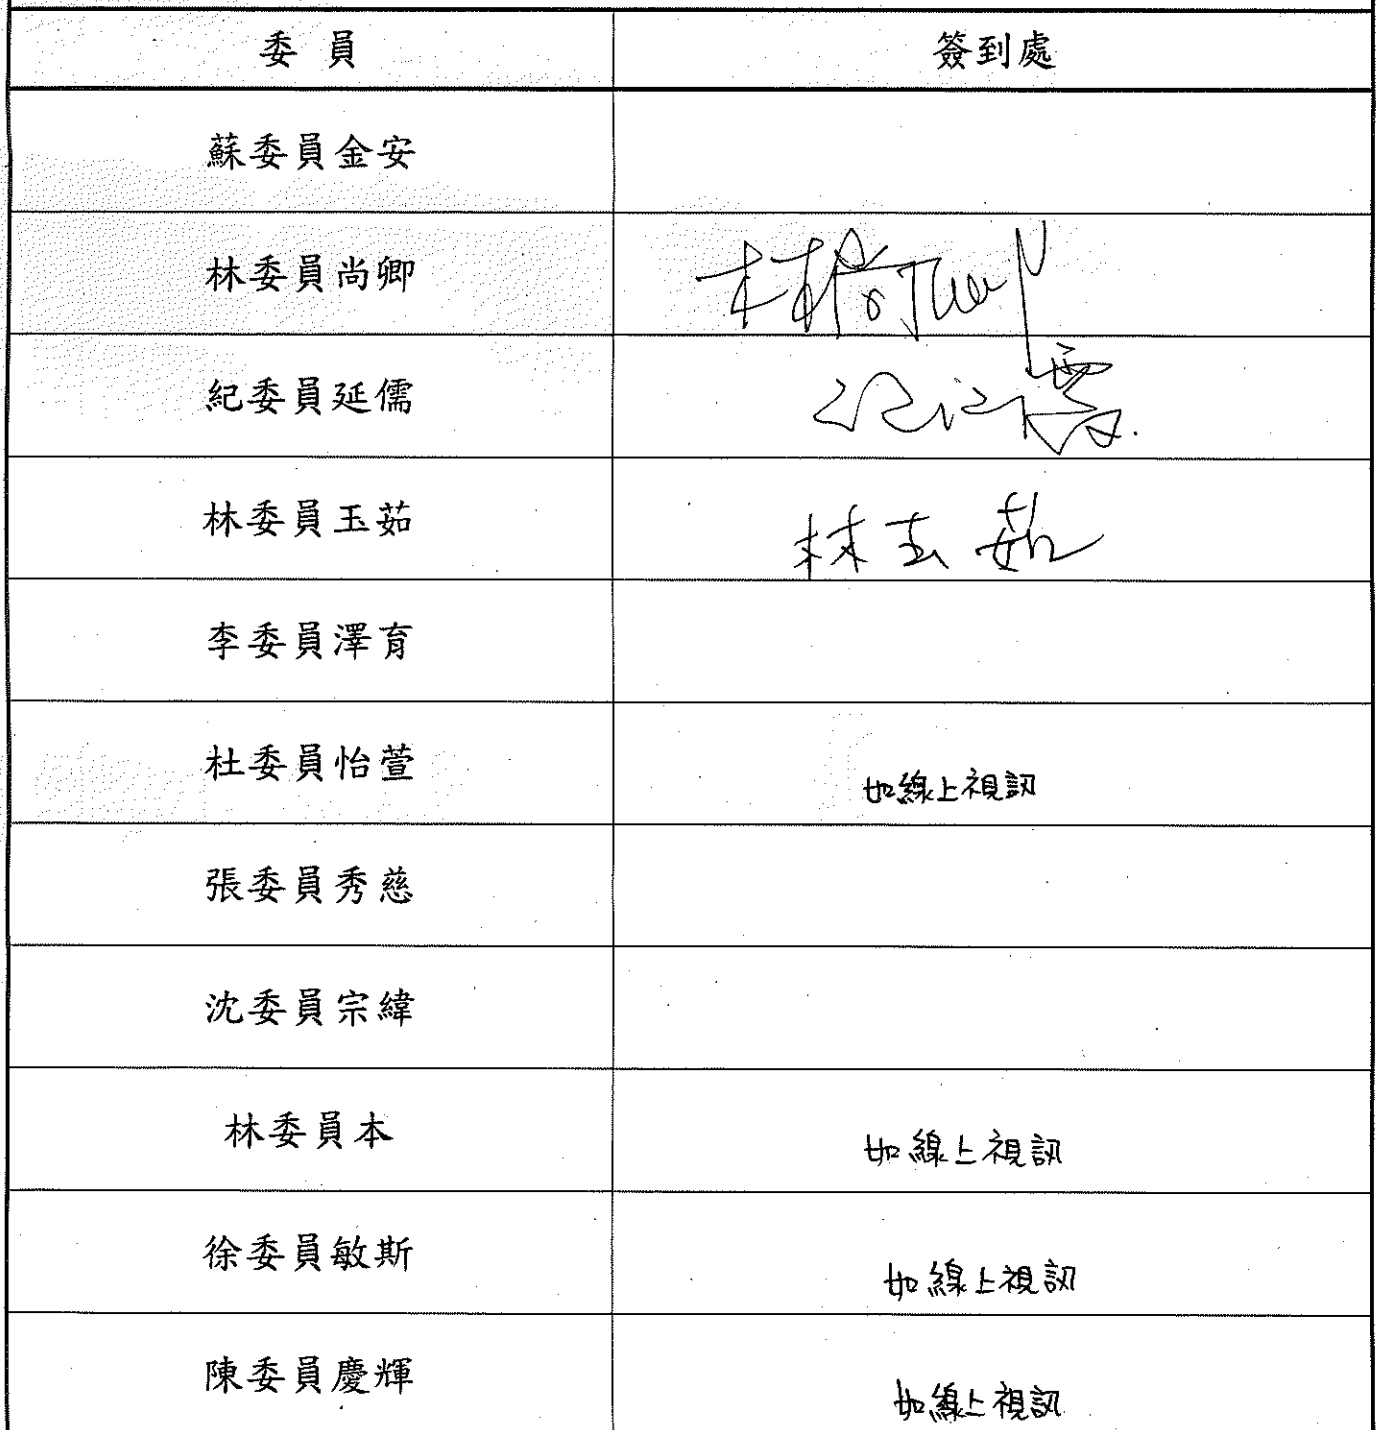 委員 簽到處
蘇委員金安
林委員尚卿 林尚卿
紀委員延儒
林委員玉茹 林玉茹
李委員澤育
杜委員怡萱 如線上視訊
張委員秀慈
沈委員宗緯
林委員本 如線上視訊
徐委員敏斯 如線上視訊
陳委員慶輝 如線上視訊